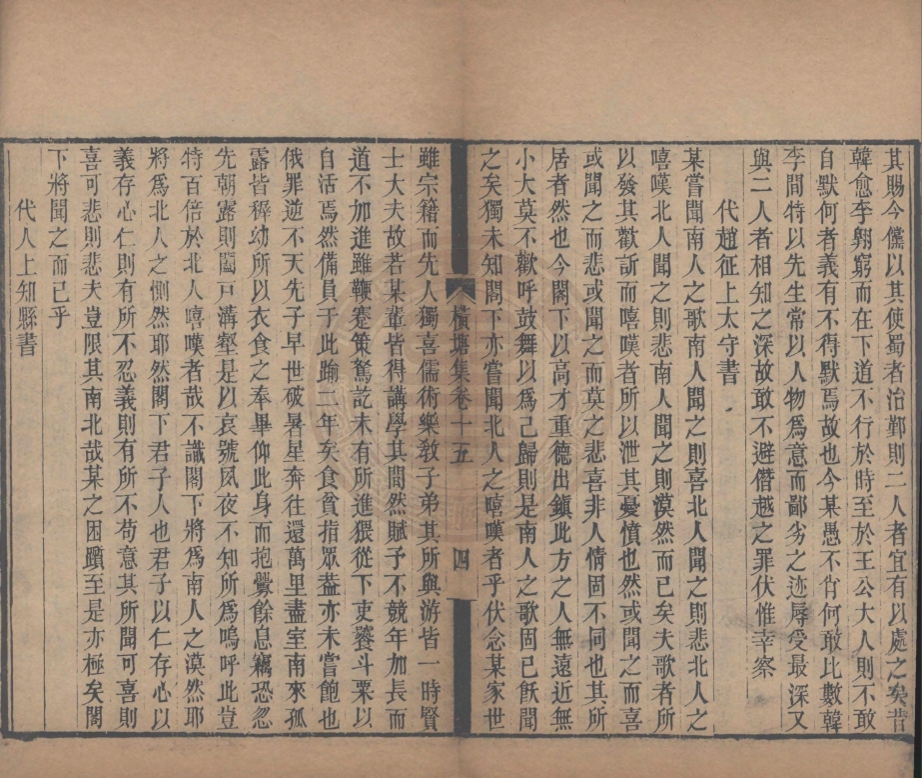 其賜今儻以其使蜀者治鄞則二人者宜有以處之矣昔
韓愈李翺窮而在下道不行於時至於王公大人則不敢
自默何者義有不得默焉故也今某愚不肖何敢比數韓
李間特以先生常以人物爲意而鄙劣之迹辱受最深又
與二人者相知之深故敢不避僭越之罪伏惟幸察
代趙征上太守書
某嘗聞南人之歌南人聞之則喜北人聞之則悲北人之
嘻嘆北人聞之則悲南人聞之則漠然而已矣夫歌者所
以發其歡訢而嘻嘆者所以泄其憂憤也然或聞之而喜
或聞之而悲或聞之而莫之悲喜非人情固不同也其所
居者然也今閣下以高才重德出鎮此方之人無遠近無
小大莫不歡呼鼓舞以爲己歸則是南人之歌固已飫聞
之矣獨未知閣下亦嘗聞北人之嘻嘆者乎伏念某家世
橫塘集卷十五 四
雖宗籍而先人獨喜儒術樂教子弟其所與游皆一時賢
士大夫故若某輩皆得講學其間然賦予不競年加長而
道不加進雖鞭蹇策駑訖未有所進猥從下吏饕斗粟以
自活焉然備員于此踰二年矣食貧指眾葢亦未嘗飽也
俄罪逆不天先子早世破暑星奔往還萬里盡室南來孤
露皆稺幼所以衣食之奉畢仰此身而抱釁餘息竊恐忽
先朝露則闔戸溝壑是以哀號夙夜不知所爲嗚呼此豈
特百倍於北人嘻嘆者哉不識閣下將爲南人之漠然耶
將爲北人之惻然耶然閣下君子人也君子以仁存心以
義存心仁則有所不忍義則有所不苟意其所聞可喜則
喜可悲則悲夫豈限其南北哉某之困躓至是亦極矣閣
下將聞之而已乎
代人上知縣書